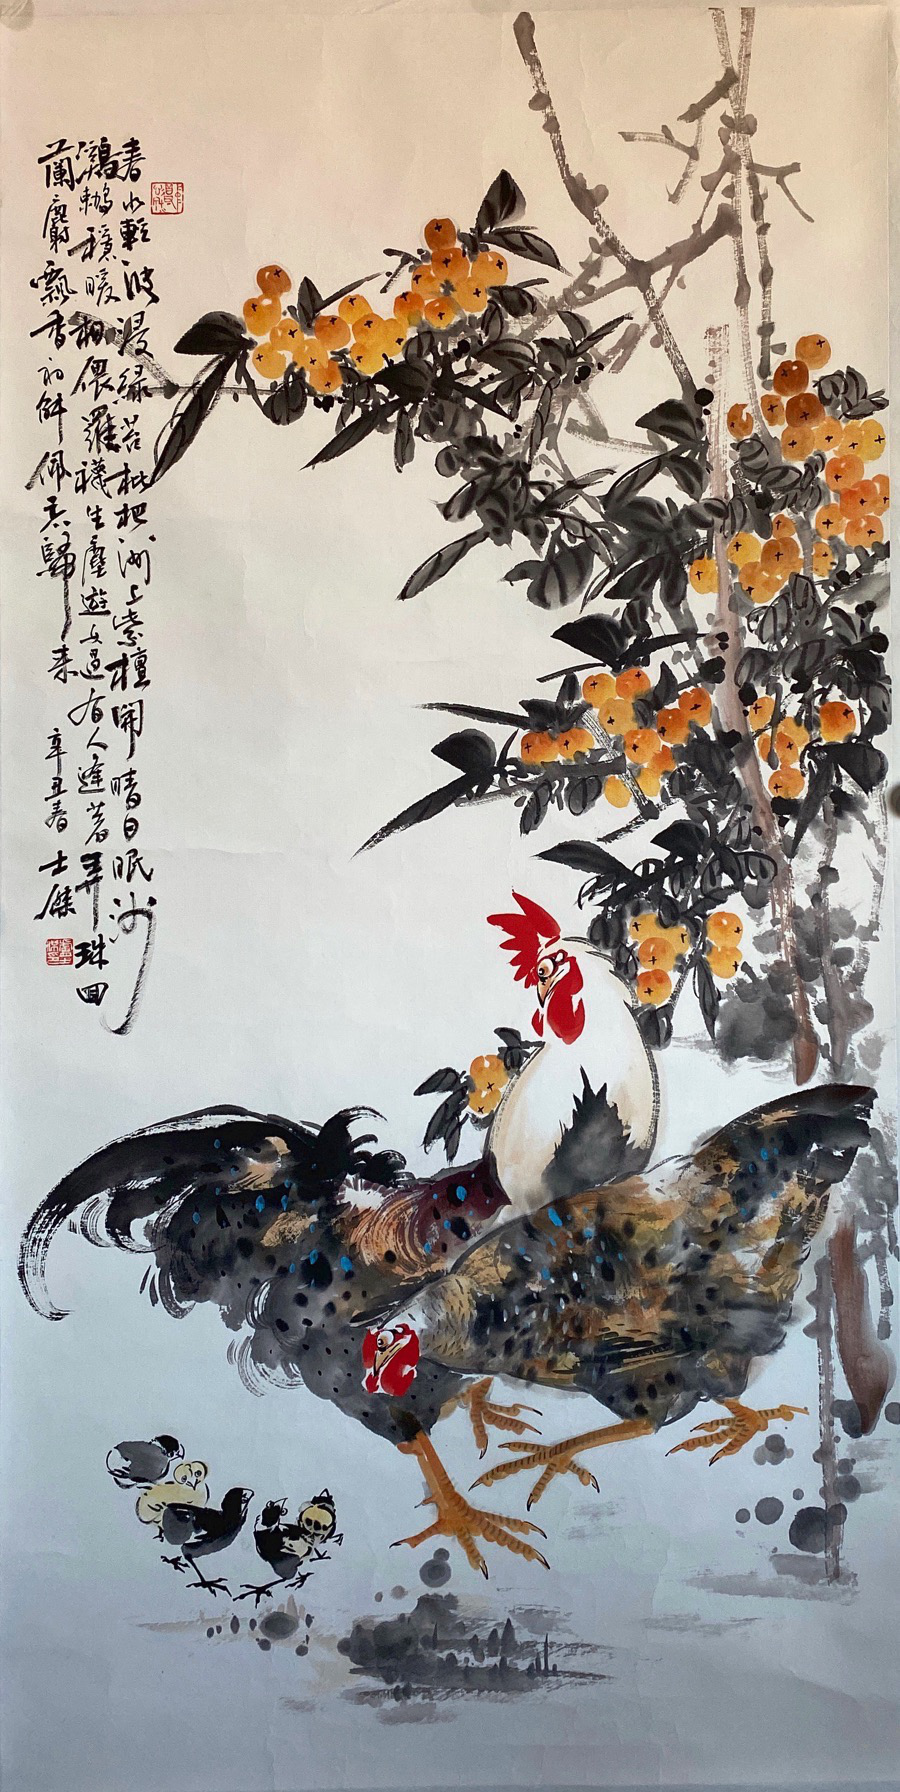 春水輕波浸綠苔枇杷洲上紫檀開晴日眠沙
鸂鶒穩暖相偎羅襪生塵遊女過有人逢著弄珠回
蘭麝飄香初解佩忘歸来 辛丑春 士傑